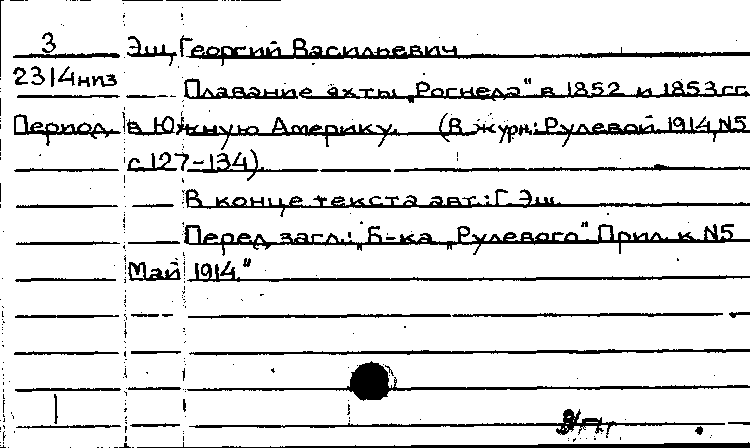 3 Эш, Георгий Васильевич
2314низ Плавание яхты „Рогнеда" в 1852 и 1853 гг.
Период. в Южную Америку. (В журн.: Рулевой 1914, N5
с 127-134).
В конце текста авт.: Г. Эш.
Перед загл.: „Б-ка „Рулевого". Прил. к N5
Май 1914."